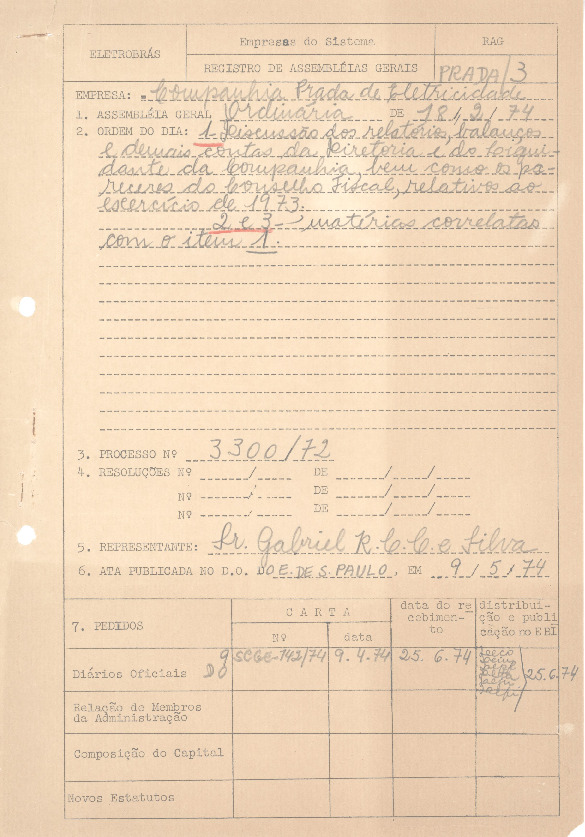 ELETROBRÁS
Empresas do Sistema
RAG
REGISTRO DE ASSEMBLÉIAS GERAIS
PRADA/3
EMPRESA: Companhia Prada de Eletricidade
1. ASSEMBLÉIA GERAL Ordinária DE 18/2/74
2. ORDEM DO DIA: 1 - Discussão dos relatórios, balanços
e demais contas da Diretoria e do Liqui-
dante da Companhia, bem como os pa-
receres do Conselho Fiscal, relativos ao
exercício de 1973.
2 e 3 - matérias correlatas
com o item 1.
3. PROCESSO Nº 3300/72
4. RESOLUÇÕES Nº / DE / /
Nº / DE / /
Nº / DE / /
5. REPRESENTANTE: Dr. Gabriel R. C. C. e Silva
6. ATA PUBLICADA NO D.O. DO E. DE S. PAULO, EM 9/5/74
7. PEDIDOS
CARTA
Nº
data
data do re
cebimen-
to
distribui-
ção e publi
cação no ERI
Diários Oficiais 9 SCGE-142/74 9.4.74 25.6.74 25.6.74
Relação de Membros
da Administração
Composição do Capital
Novos Estatutos